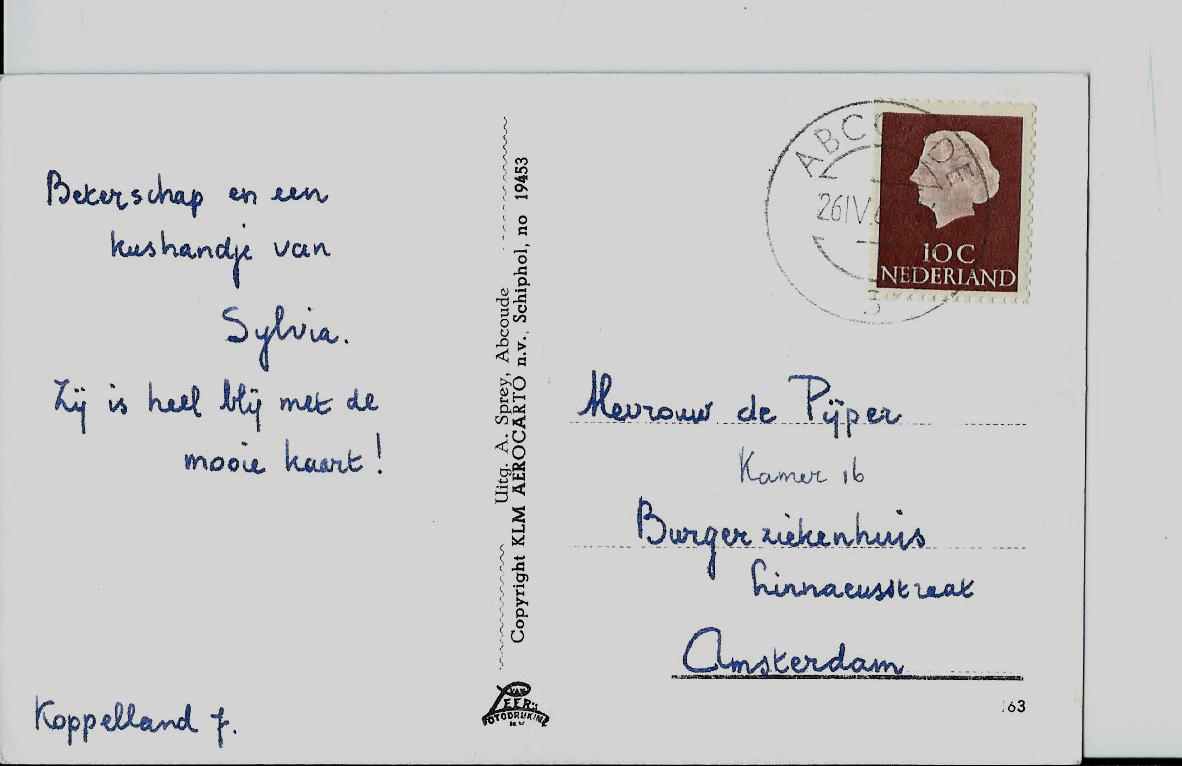 Beterschap en een
kushandje van
Sylvia.
Zij is heel blij met de
mooie kaart!
Koppelland 7.
Uitg. A. Sprey, Abcoude
Copyright KLM AEROCARTO n.v., Schiphol, no 19453
VAN
LEER's
FOTODRUKIND.
N.V.
ABCOUDE
26 IV
3
10 C
NEDERLAND
Mevrouw de Pijper
Kamer 16
Burgerziekenhuis
Linnaeusstraat
Amsterdam
163